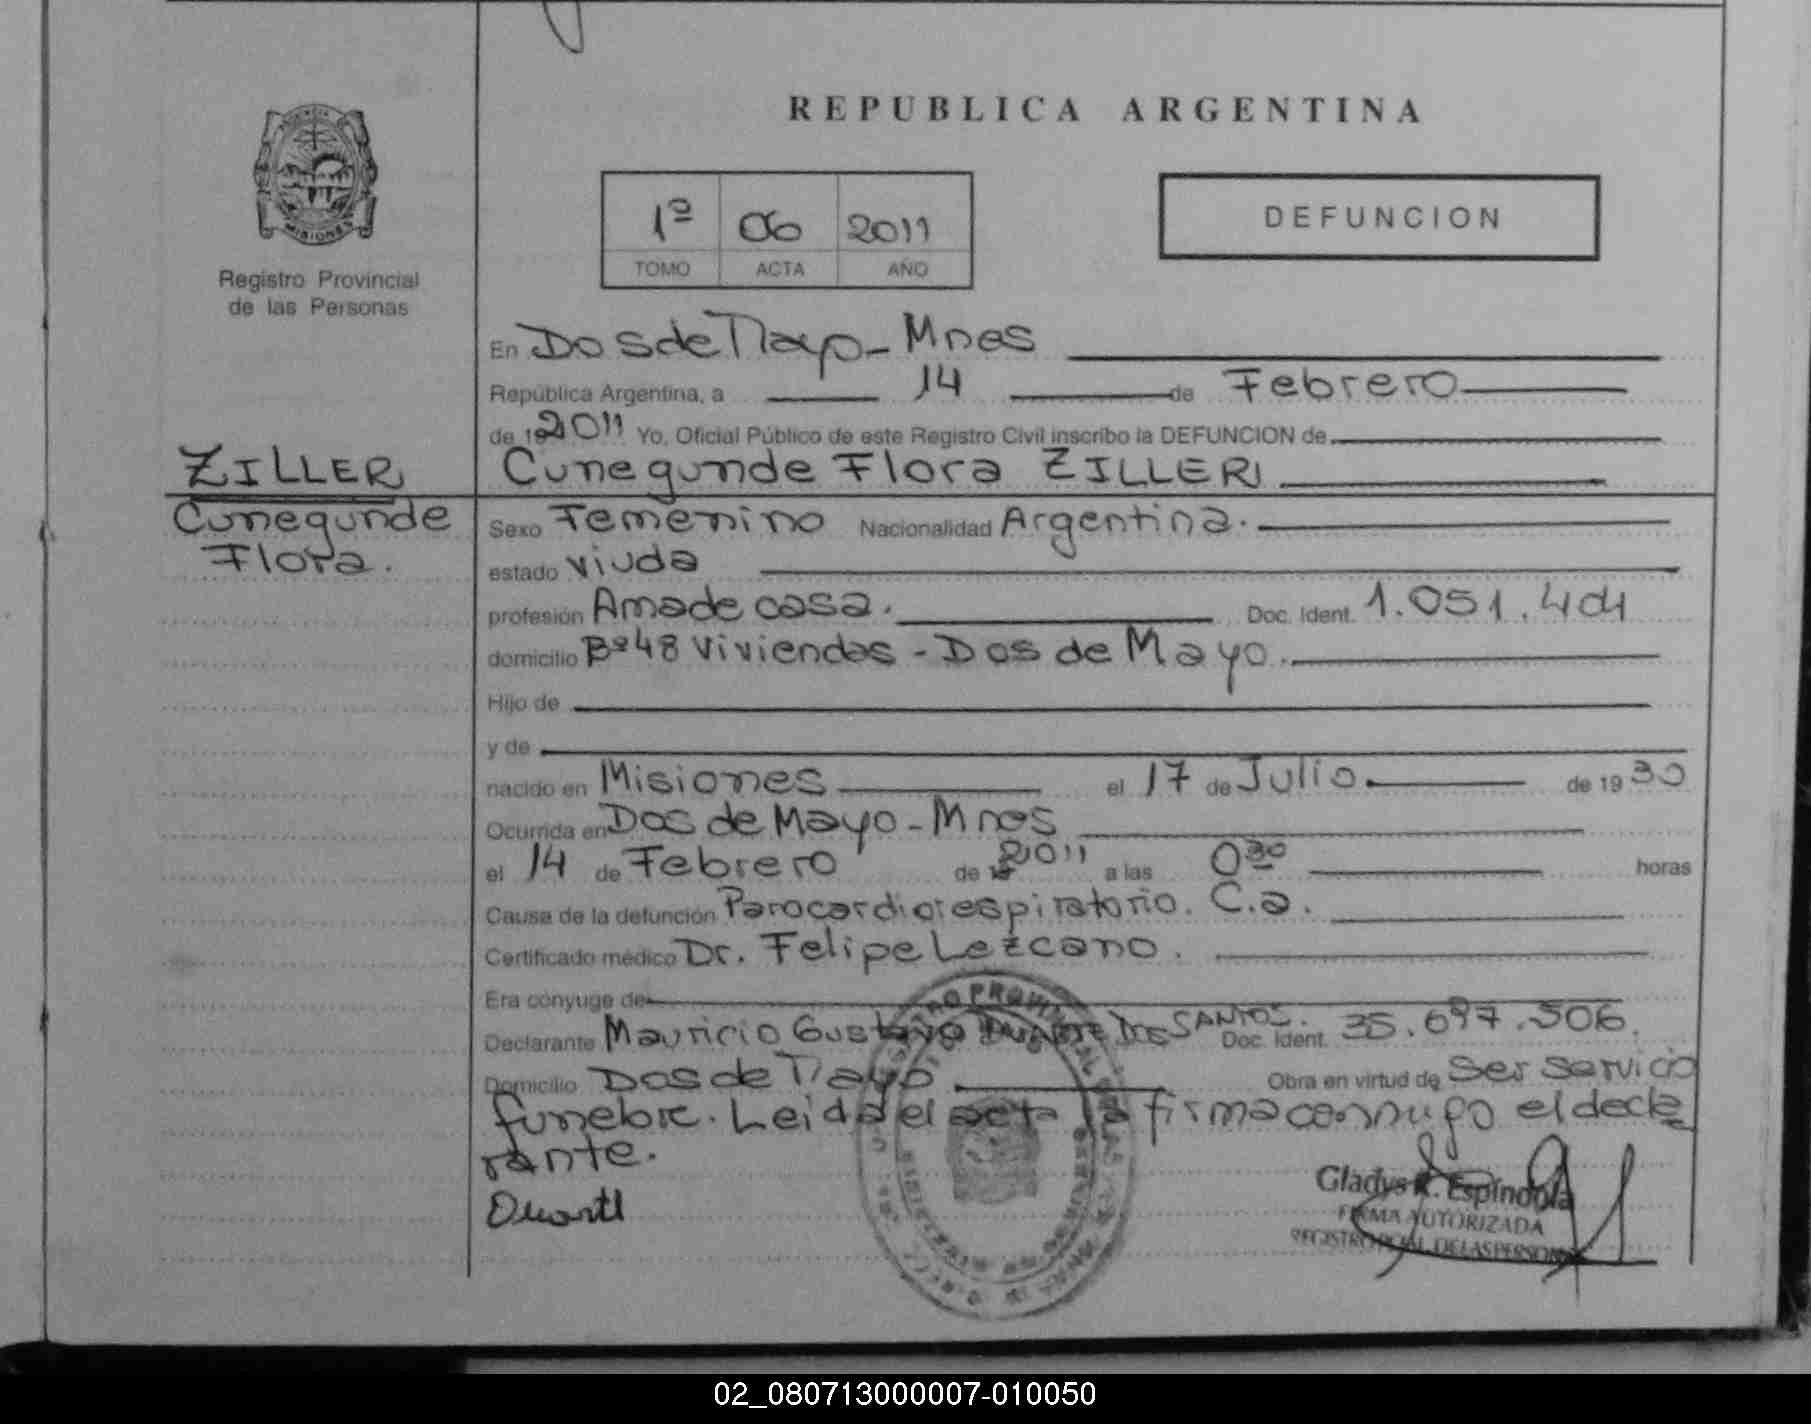 REPUBLICA ARGENTINA
MISIONES
Registro Provincial
de las Personas
1º 06 2011
TOMO ACTA AÑO
DEFUNCION
En Dos de Mayo - Mnes
República Argentina, a 14 de Febrero
de 2011 Yo, Oficial Público de este Registro Civil inscribo la DEFUNCION de
ZILLER
Cunegunde Flora ZILLER
Cunegunde
Flora.
Sexo Femenino Nacionalidad Argentina.
estado viuda
profesión Ama de casa. Doc. Ident. 1.051.401
domicilio Bº 48 Viviendas - Dos de Mayo.
Hijo de
y de
nacido en Misiones el 17 de Julio. de 1930
Ocurrida en Dos de Mayo - Mnes
el 14 de Febrero de 2011 a las 0 30 horas
Causa de la defunción Parocardiorespiratorio. C.a.
Certificado médico Dr. Felipe Lezcano.
Era cónyuge de
Declarante Mauricio Gustavo Duarte Dos SANTOS. Doc. Ident. 35.697.506.
Domicilio Dos de Mayo Obra en virtud de Ser servicio
funebre. Leida el acta la firma conmigo el decla
rante.
Duarte
Gladys R. Espíndola
FIRMA AUTORIZADA
REGISTRO PCIAL. DE LAS PERSONAS
02_080713000007-010050